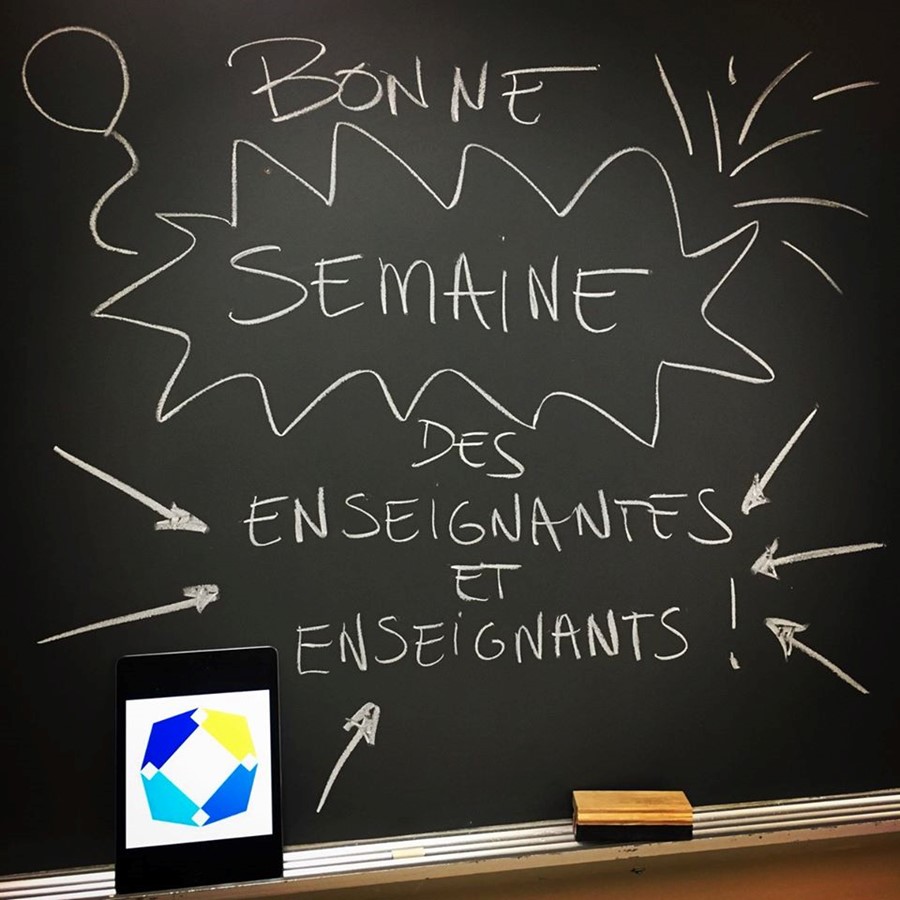 BONNE
SEMAINE
DES
ENSEIGNANTES
ET
ENSEIGNANTS !